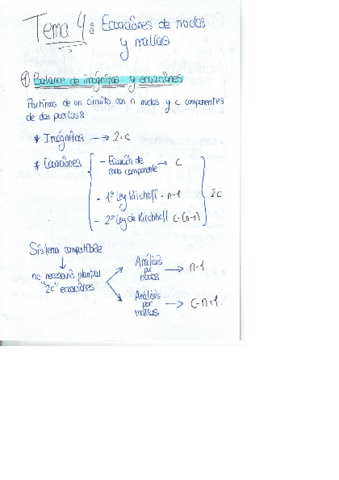 Tema 4: Ecuaciones de nodos
y mallas
① Balance de incógnitas y ecuaciones
Partimos de un circuito con n nodos y c componentes
de dos puertos:
* Incógnitas → 2·c
* Ecuaciones
- Ecuación de cada componente → c
- 1ª Ley Kirchoff - n-1
- 2ª Ley de Kirchhoff c-(n-1)
2c
Sistema compatible
no necesario plantear
"2c" ecuaciones
Análisis por nodos → n-1
Análisis por mallas → c-n+1